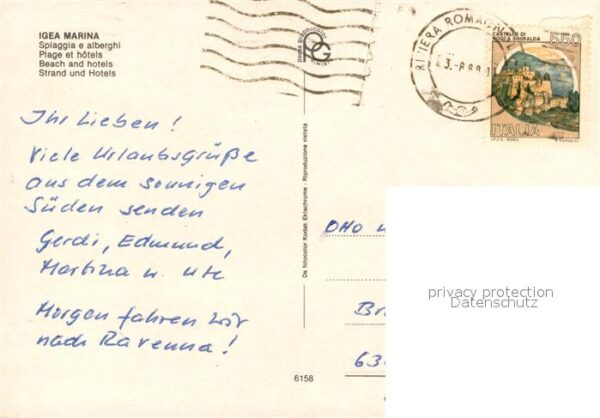 IGEA MARINA
Spiaggia e alberghi
Plage et hôtels
Beach and hotels
Strand und Hotels
Ihr Lieben!
Viele Urlaubsgrüße
aus dem sonnigen
Süden senden
Gerdi, Edmund,
Martina u. Ute
Morgen fahren wir
nach Ravenna!
6158
Da fotocolor Kodak Ektachrome - Riproduzione vietata
RIVIERA ROMAGN
CASTELLO DI
ROCCA SINIBALDA
550
ITALIA
OHO
Br
63
privacy protection
Datenschutz